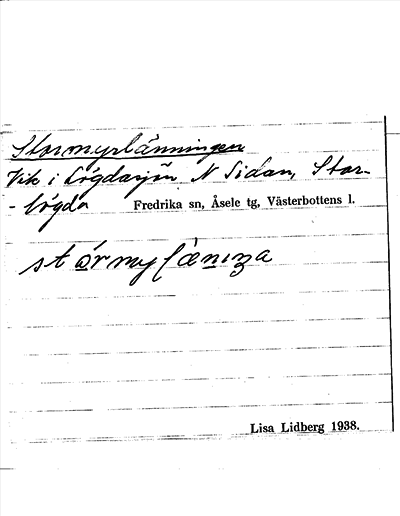 Stormyrlänningen
Vik i Lögdasjön N Sidan, Stor-
- lögda Fredrika sn, Åsele tg, Västerbottens l.
Lisa Lidberg 1938.